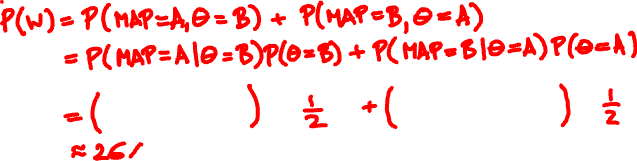 P(W) = P(MAP=A, Θ=B) + P(MAP=B, Θ=A)
= P(MAP=A|Θ=B)P(Θ=B) + P(MAP=B|Θ=A)P(Θ=A)
= (       ) 1/2 + (       ) 1/2
≈ 26/